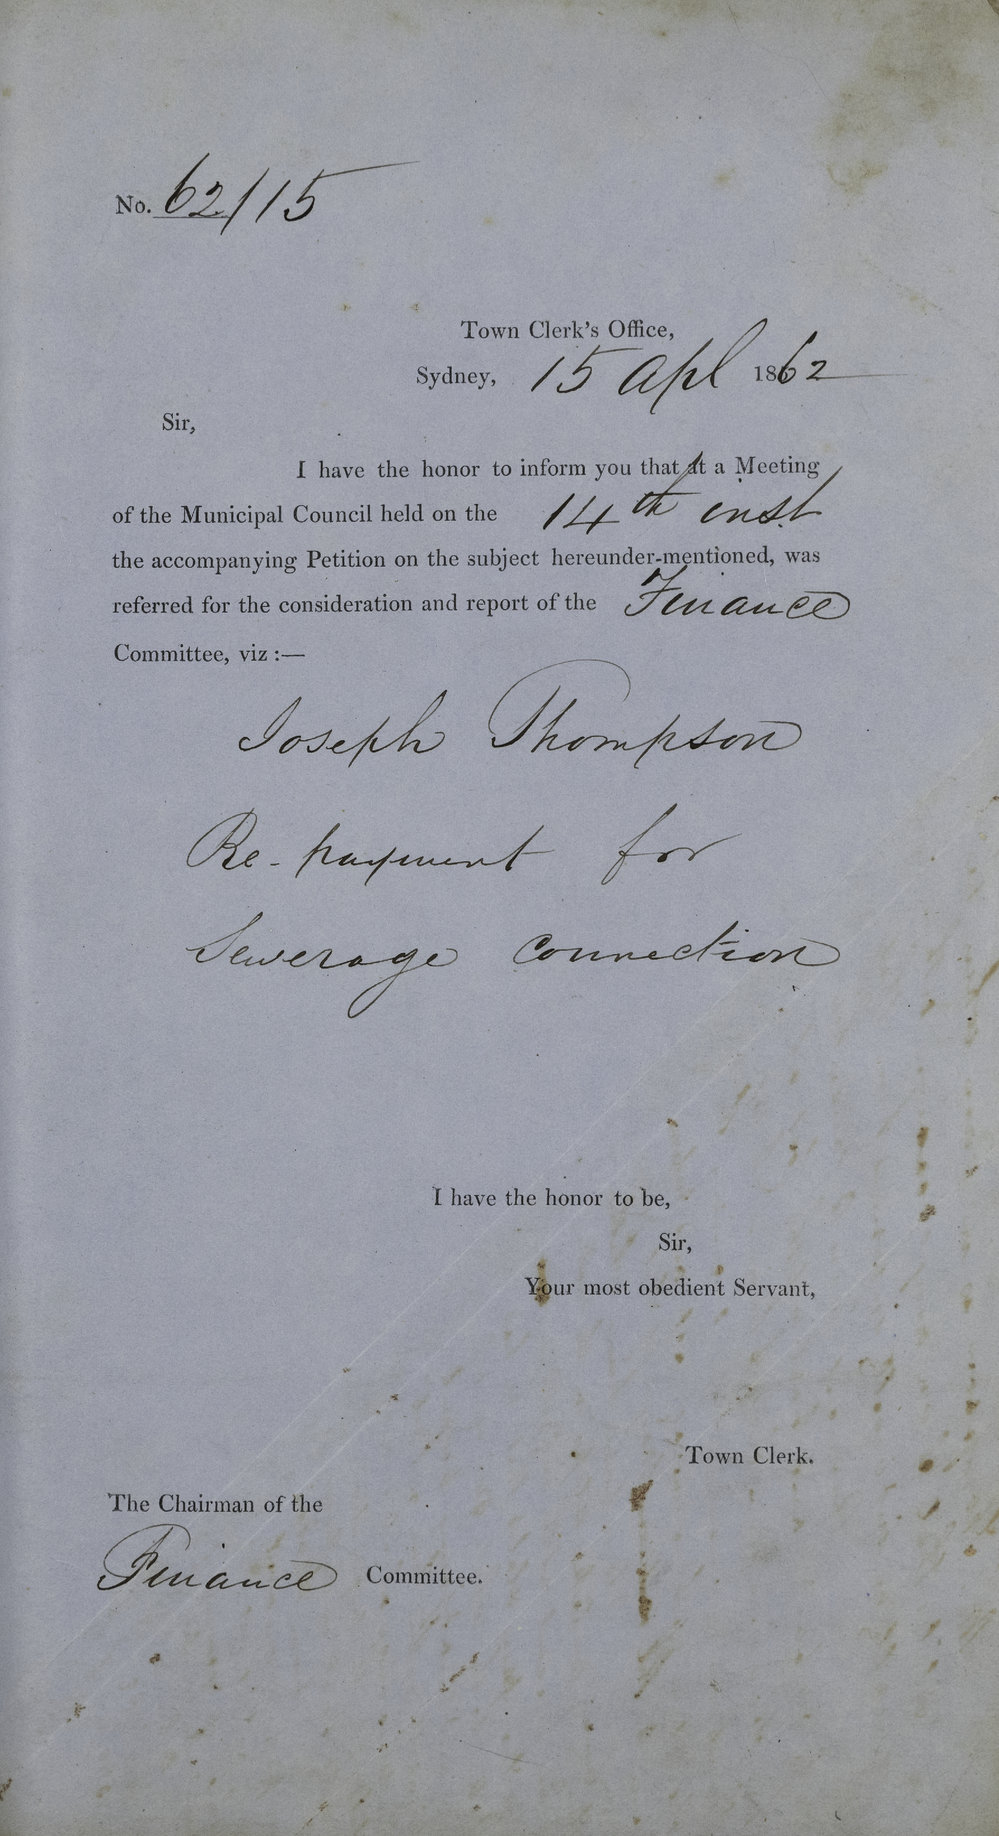 No. 62/115
Town Clerk's Office,
Sydney, 15 Apl 1862
Sir,
I have the honor to inform you that at a Meeting
of the Municipal Council held on the 14th inst
the accompanying Petition on the subject hereunder-mentioned, was
referred for the consideration and report of the Finance
Committee, viz :—
Joseph Thompson
Re-payment for
Sewerage Connection
I have the honor to be,
Sir,
Your most obedient Servant,
Town Clerk.
The Chairman of the
Finance Committee.